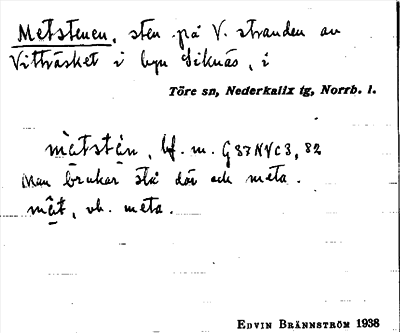 Metstenen, sten på V. stranden av
Vitträsket i byn Siknäs, i
Töre sn, Nederkalix tg, Norrb. l.
mètstèn, bf. m. G 37 NV c 3, 82
Man brukar stå där och meta.
mêt, vb. meta.
EDVIN BRÄNNSTRÖM 1938